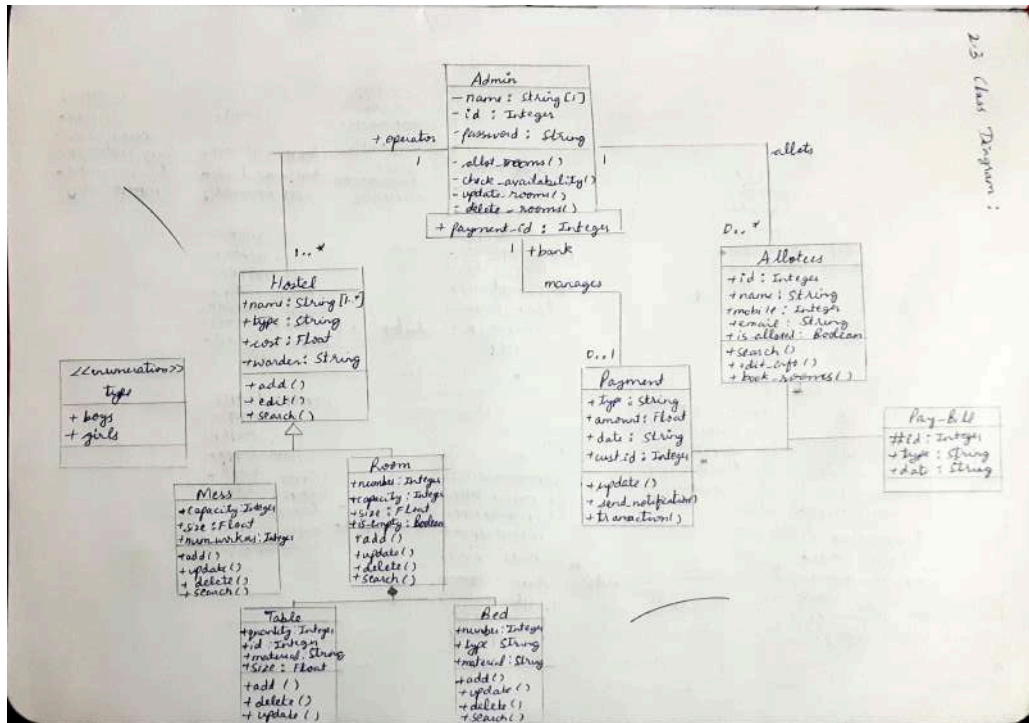 2.3 Class Diagram :
Admin
- name : String [1]
- id : Integer
- password : String
- allot_rooms()
- check_availability()
- update_rooms()
- delete_rooms()
+ payment_id : Integer
+ operator
1
1
allots
1..*
0..*
1
+ bank
manages
0..1
Hostel
+ name : String [1..*]
+ type : String
+ cost : Float
+ warden : String
+ add()
+ edit()
+ search()
Allotees
+ id : Integer
+ name : String
+ mobile : Integer
+ email : String
+ is_alloted : Boolean
+ search()
+ edit_info()
+ book_rooms()
<<enumeration>>
type
+ boys
+ girls
Payment
+ Type : String
+ amount : Float
+ date : String
+ cust.id : Integer
+ update()
+ send_notification()
+ tranaction()
*
Pay-Bill
#id : Integer
+ type : String
+ date : String
Mess
+ capacity : Integer
+ size : Float
+ num_workers : Integer
+ add()
+ update()
+ delete()
+ search()
Room
+ number : Integer
+ capacity : Integer
+ size : Float
+ is-empty : Boolean
+ add()
+ update()
+ delete()
+ search()
Table
+ quantity : Integer
+ id : Integer
+ material : String
+ size : Float
+ add ()
+ delete()
+ update()
Bed
+ number : Integer
+ type : String
+ material : String
+ add()
+ update()
+ delete()
+ search()